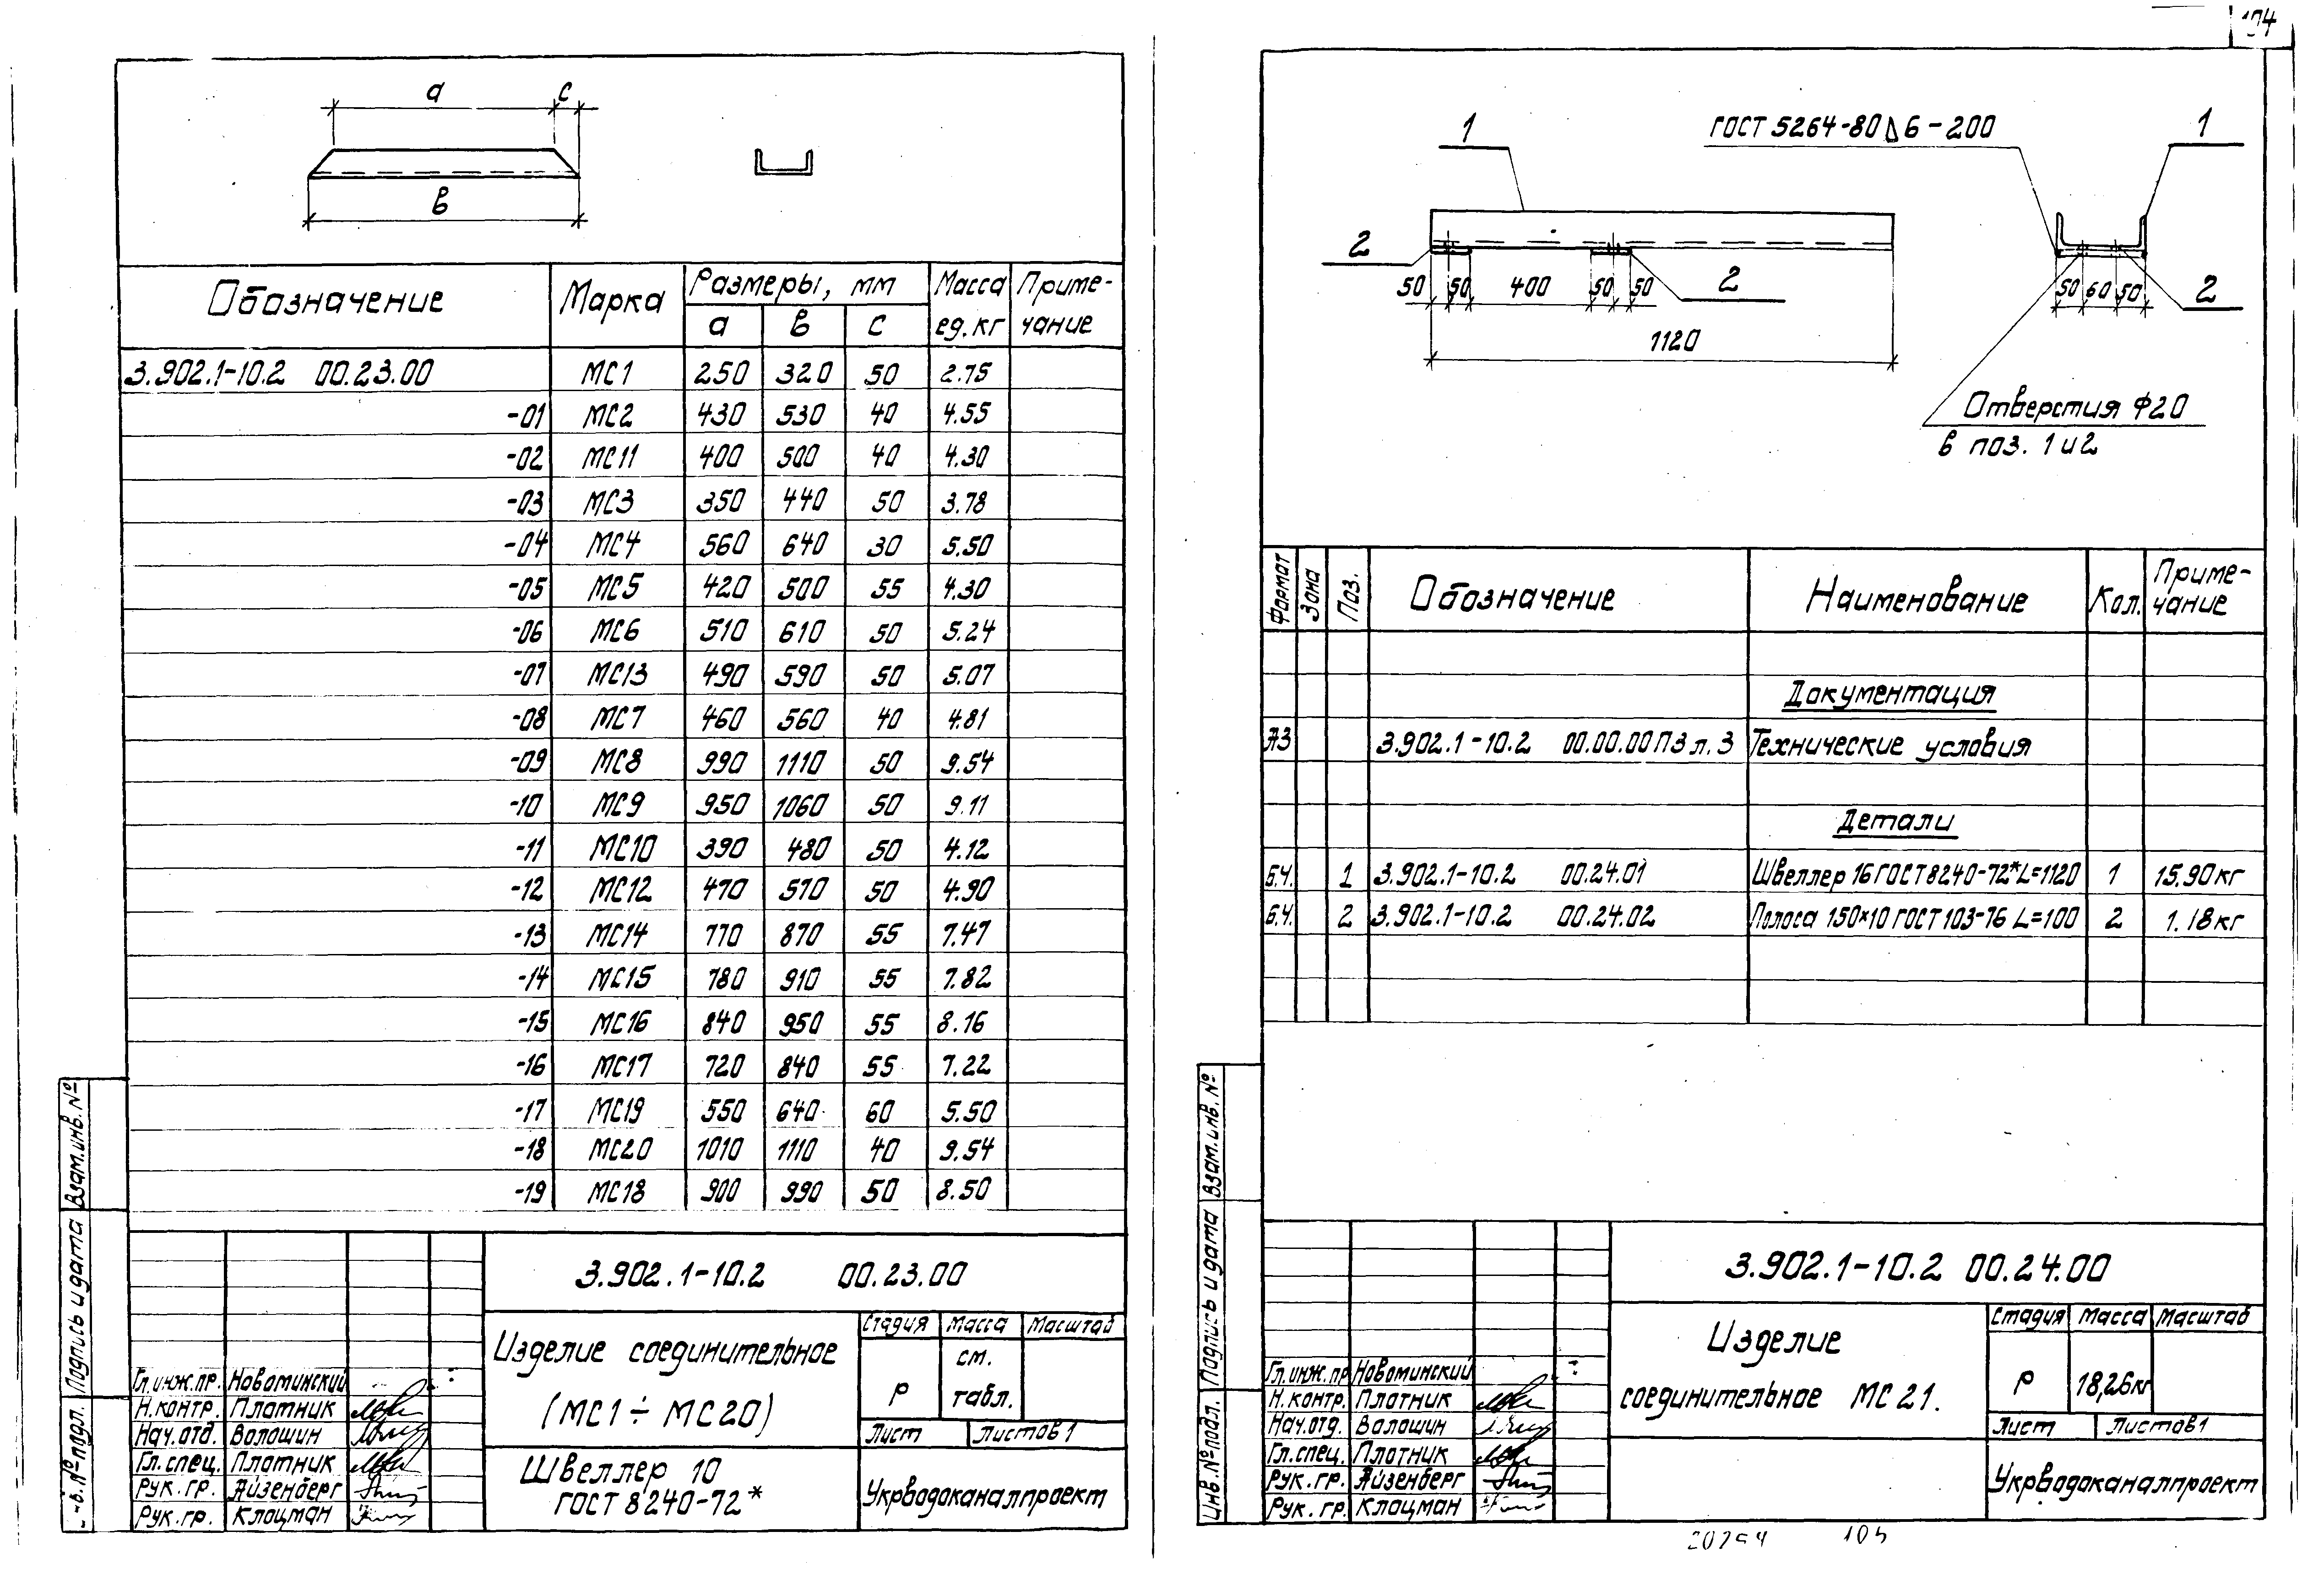 104
а
с
в
Обозначение Марка Размеры, мм Масса ед. кг Приме-чание
а в с
3.902.1-10.2 00.23.00 МС1 250 320 50 2.75
-01 МС2 430 530 40 4.55
-02 МС11 400 500 40 4.30
-03 МС3 350 440 50 3.78
-04 МС4 560 640 30 5.50
-05 МС5 420 500 55 4.30
-06 МС6 510 610 50 5.24
-07 МС13 490 590 50 5.07
-08 МС7 460 560 40 4.81
-09 МС8 990 1110 50 9.54
-10 МС9 950 1060 50 9.11
-11 МС10 390 480 50 4.12
-12 МС12 470 570 50 4.90
-13 МС14 770 870 55 7.47
-14 МС15 780 910 55 7.82
-15 МС16 840 950 55 8.16
-16 МС17 720 840 55 7.22
-17 МС19 550 640 60 5.50
-18 МС20 1010 1110 40 9.54
-19 МС18 900 990 50 8.50
3.902.1-10.2 00.23.00
Изделие соединительное
(МС1÷МС20)
Стадия Масса Масштаб
Р см. табл.
Лист Листов 1
Швеллер 10
ГОСТ 8240-72*
Укрводоканалпроект
Гл.инж.пр. Новоминский
Н.контр. Плотник
Нач.отд. Волошин
Гл.спец. Плотник
Рук.гр. Айзенберг
Рук.гр. Клоцман
Взам.инв.№
Подпись и дата
№ подл.
1
ГОСТ 5264-80 ⊿6-200
1
2
2
2
50 50 400 50 50
1120
50 60 50
Отверстия Ф20
в поз. 1 и 2
Формат Зона Поз. Обозначение Наименование Кол. Приме-чание
Документация
А3 3.902.1-10.2 00.00.00ПЗ л.3 Технические условия
Детали
Б.Ч. 1 3.902.1-10.2 00.24.01 Швеллер 16 ГОСТ 8240-72* L=1120 1 15.90 кг
Б.Ч. 2 3.902.1-10.2 00.24.02 Полоса 150×10 ГОСТ 103-76 L=100 2 1.18 кг
3.902.1-10.2 00.24.00
Изделие
соединительное МС21.
Стадия Масса Масштаб
Р 18,26кг
Лист Листов 1
Укрводоканалпроект
Гл.инж.пр Новоминский
Н.контр. Плотник
Нач.отд. Волошин
Гл.спец. Плотник
Рук.гр. Айзенберг
Рук.гр. Клоцман
Взам.инв.№
Подпись и дата
Инв.№ подл.
105